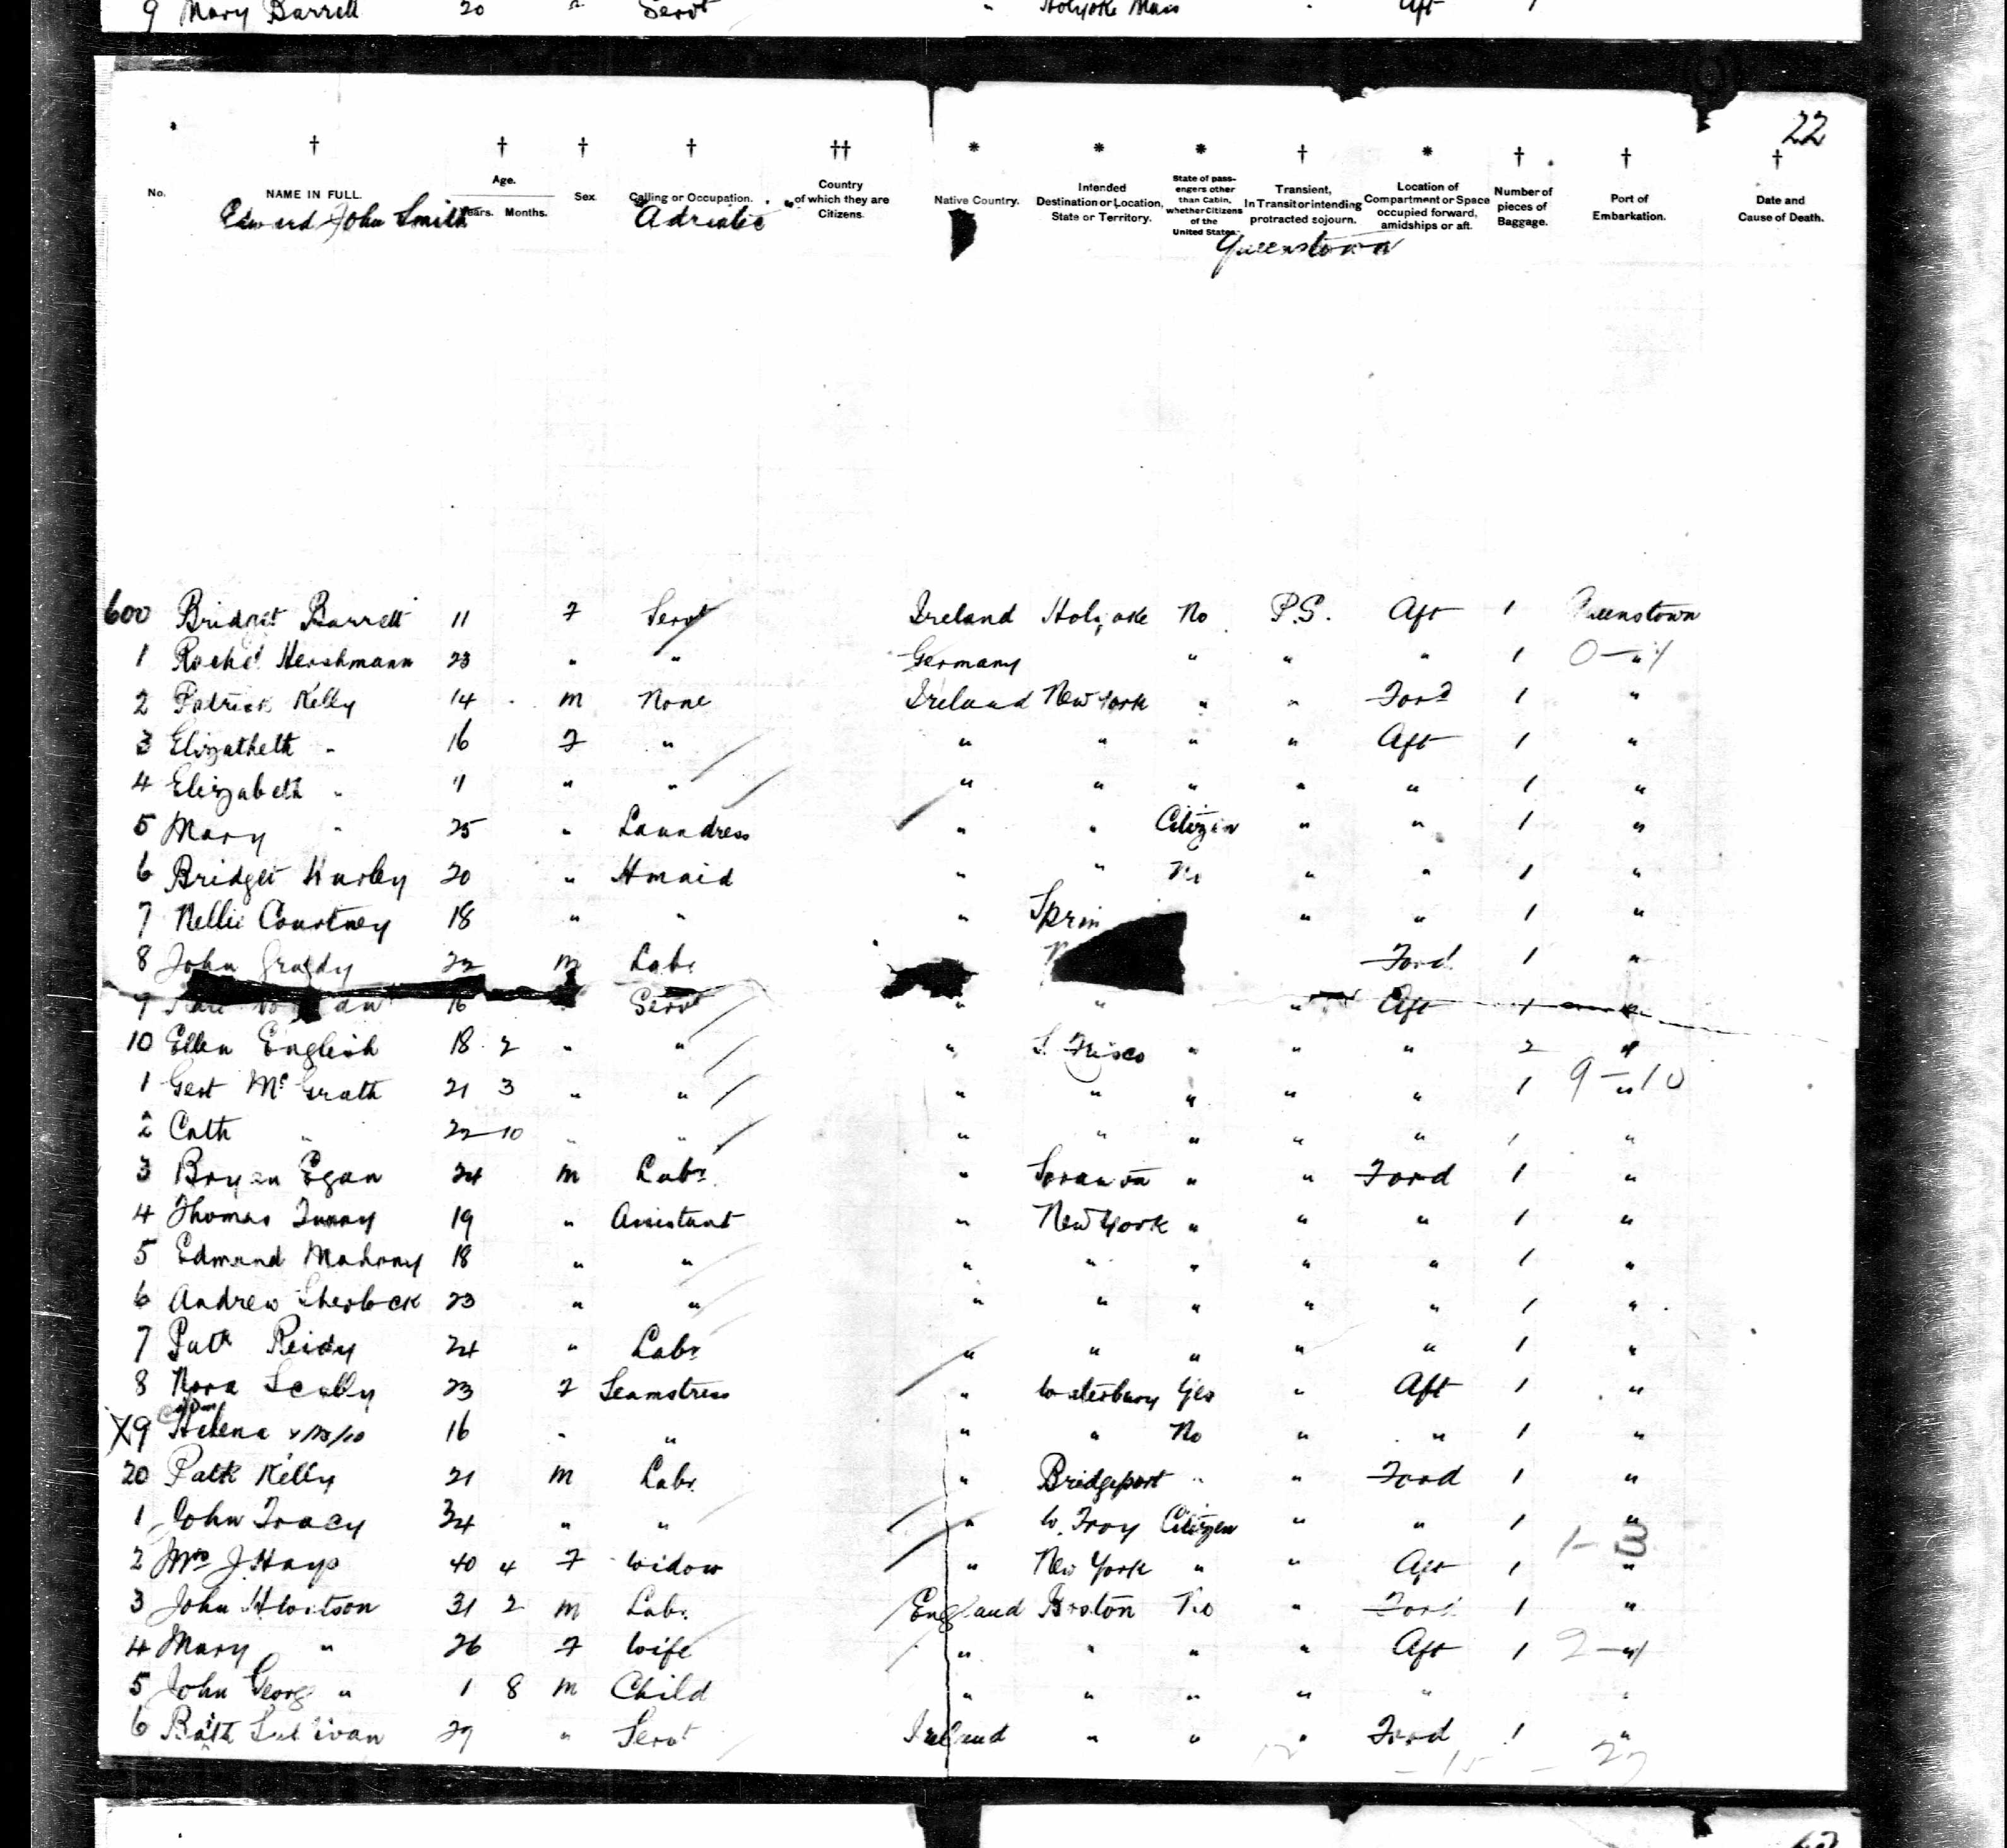 9 Mary Barrett 20 " Servt " Holyoke Mass " Aft 1
22
No. NAME IN FULL. Age. Years. Months. Sex Calling or Occupation. Country of which they are Citizens. Native Country. Intended Destination or Location, State or Territory. State of passengers other than Cabin, whether Citizens of the United States. Transient, In Transit or intending protracted sojourn. Location of Compartment or Space occupied forward, amidships or aft. Number of pieces of Baggage. Port of Embarkation. Date and Cause of Death.
Edward John Smith "Adriatic" Queenstown
600 Bridget Barrett 11 F Servt Ireland Holyoke No P.S. Aft 1 Queenstown
1 Rachel Hershmann 23 " " Germany " " " 1 "
2 Patrick Kelly 14 m None Ireland New York " " Ford 1 "
3 Elizatheth " 16 F " " " " " Aft 1 "
4 Elizabeth " 11 " " " " " " " 1 "
5 Mary " 25 " Laundress " " Citizen " " 1 "
6 Bridget Hurley 20 " Hmaid " " No " " 1 "
7 Nellie Courtney 18 " " " Sprin " " 1 "
8 John Grady 22 m Labr Ford 1 "
9 16 Servt " " " Aft 1 "
10 Ellen English 18 2 " " " S. Frisco " " " 2 "
1 Gert McGrath 21 3 " " " " " " " 1 " 9-10
2 Cath " 22 10 " " " " " " " 1 "
3 Bryan Egan 24 m Labr " " " Ford 1 "
4 Thomas 19 " Assistant " New York " " " 1 "
5 Edmund Mahony 18 " " " " " " " 1 "
6 Andrew Sherlock 23 " " " " " " " 1 "
7 Patk Reidy 24 " Labr " " " " " 1 "
8 Nora Scully 23 F Seamstress " Waterbury Yes " Aft 1 "
X9 Helena 16 " " " " No " " 1 "
20 Patk Kelly 21 m Labr " Bridgeport " " Ford 1 "
1 John Tracy 34 " " " W. Troy Citizen " " 1 "
2 Mrs J Hays 40 4 F Widow " New York " " Aft 1 "
3 John 31 2 m Labr England Boston No " Ford 1 "
4 Mary " 26 F Wife " " " " Aft 1 "
5 John Georg " 1 8 m Child " " " " " "
6 Sullivan 29 " Servt Ireland " " " Ford 1 "